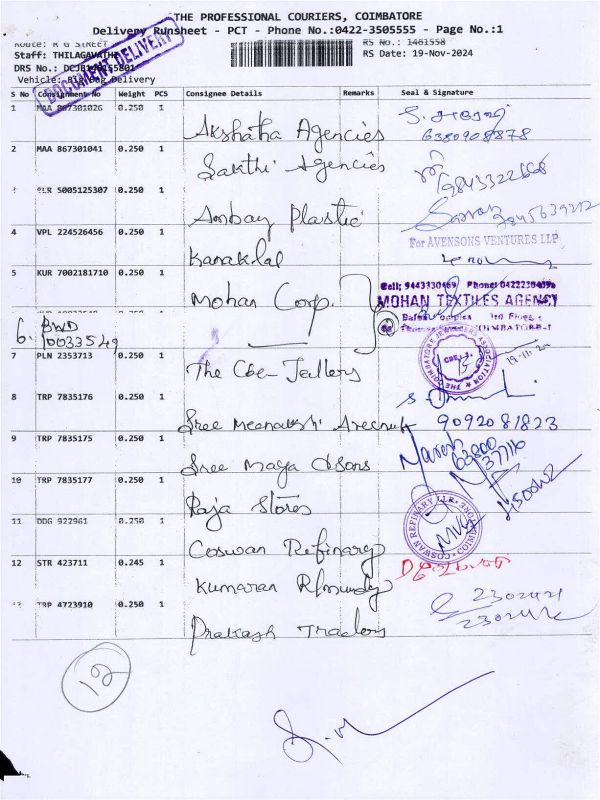 THE PROFESSIONAL COURIERS, COIMBATORE
Delivery Runsheet - PCT - Phone No.:0422-3505555 - Page No.:1
Route: R G STREET
RS No.: 1461558
Staff: THILAGAVATHI
RS Date: 19-Nov-2024
DRS No.:
Vehicle: Delivery
DOCUMENT DELIVERY
S No Consignment No Weight PCS Consignee Details Remarks Seal & Signature
1 MAA 867301026 0.250 1 Akshatha Agencies
6380908878
2 MAA 867301041 0.250 1 Sakthi Agencies
5005125307 0.250 1 Ambay Plastic
4 VPL 224526456 0.250 1 Kanaklal
For AVENSONS VENTURES LLP
5 KUR 7002181710 0.250 1 Mohan Corp.
Cell: 9443330469 Phone: 0422230469
MOHAN TEXTILES AGENCY
COIMBATORE-1
6. BWD
10033549
7 PLN 2353713 0.250 1 The Cbe Jellers
THE COIMBATORE JEWELLERS ASSOCIATION
19-11-24
8 TRP 7835176 0.250 1 Sree Meenakshi Arecnut
9092081823
9 TRP 7835175 0.250 1 Sree Maga & sons
Naresh
63800
37716
10 TRP 7835177 0.250 1 Raja Stores
11 DDG 922961 0.250 1 Coswan Refinary
COSWAN REFINARY LLP COIMBATORE
12 STR 423711 0.245 1 Kumaran
13 TRP 4723910 0.250 1 Prakash Traders
2302421